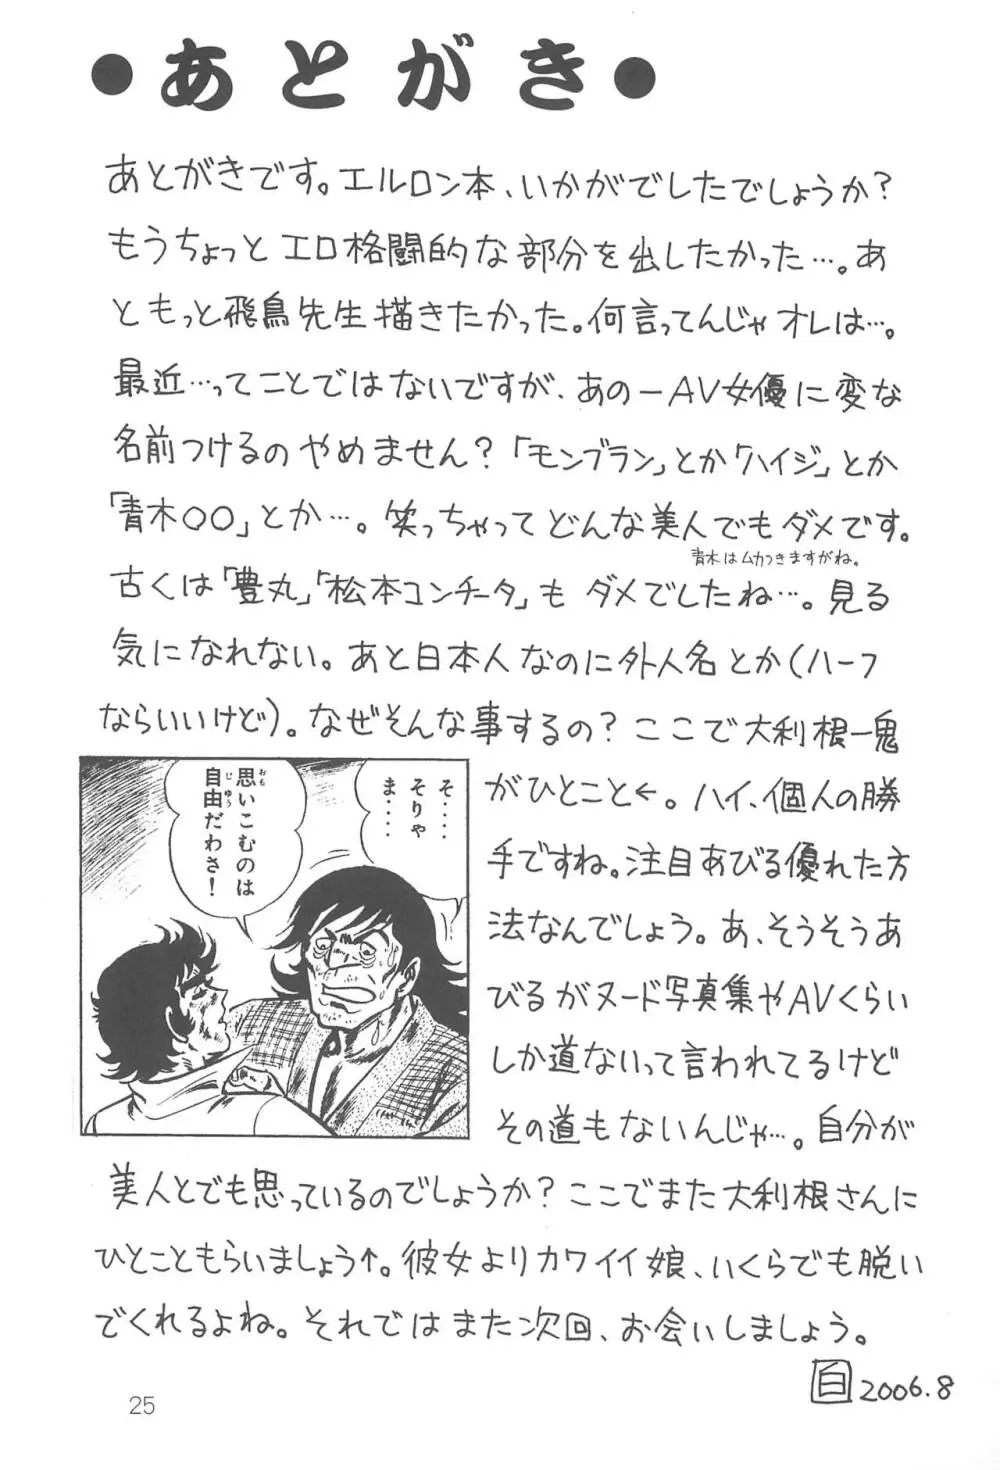 ●あとがき●
あとがきです。エルロン本、いかがでしたでしょうか?
もうちょっとエロ格闘的な部分を出したかった…。あ
ともっと飛鳥先生描きたかった。何言ってんじゃオレは…。
最近…ってことではないですが、あのーAV女優に変な
名前つけるのやめません?「モンブラン」とか「ハイジ」とか
「青木〇〇」とか…。笑っちゃってどんな美人でもダメです。
青木はムカつきますがね。
古くは「豊丸」「松本コンチータ」もダメでしたね…。見る
気になれない。あと日本人なのに外人名とか(ハーフ
ならいいけど)。なぜそんな事するの?ここで大利根一鬼
がひとこと←。ハイ、個人の勝
手ですね。注目あびる優れた方
法なんでしょう。あ、そうそうあ
びるがヌード写真集やAVくらい
しか道ないって言われてるけど
その道もないんじゃ…。自分が
美人とでも思っているのでしょうか?ここでまた大利根さんに
ひとこともらいましょう↑。彼女よりカワイイ娘、いくらでも脱い
でくれるよね。それではまた次回、お会いしましょう。
そ‥‥
そりゃ
ま‥‥
思いこむのは
おも
自由だわさ!
じゆう
白 2006.8
25